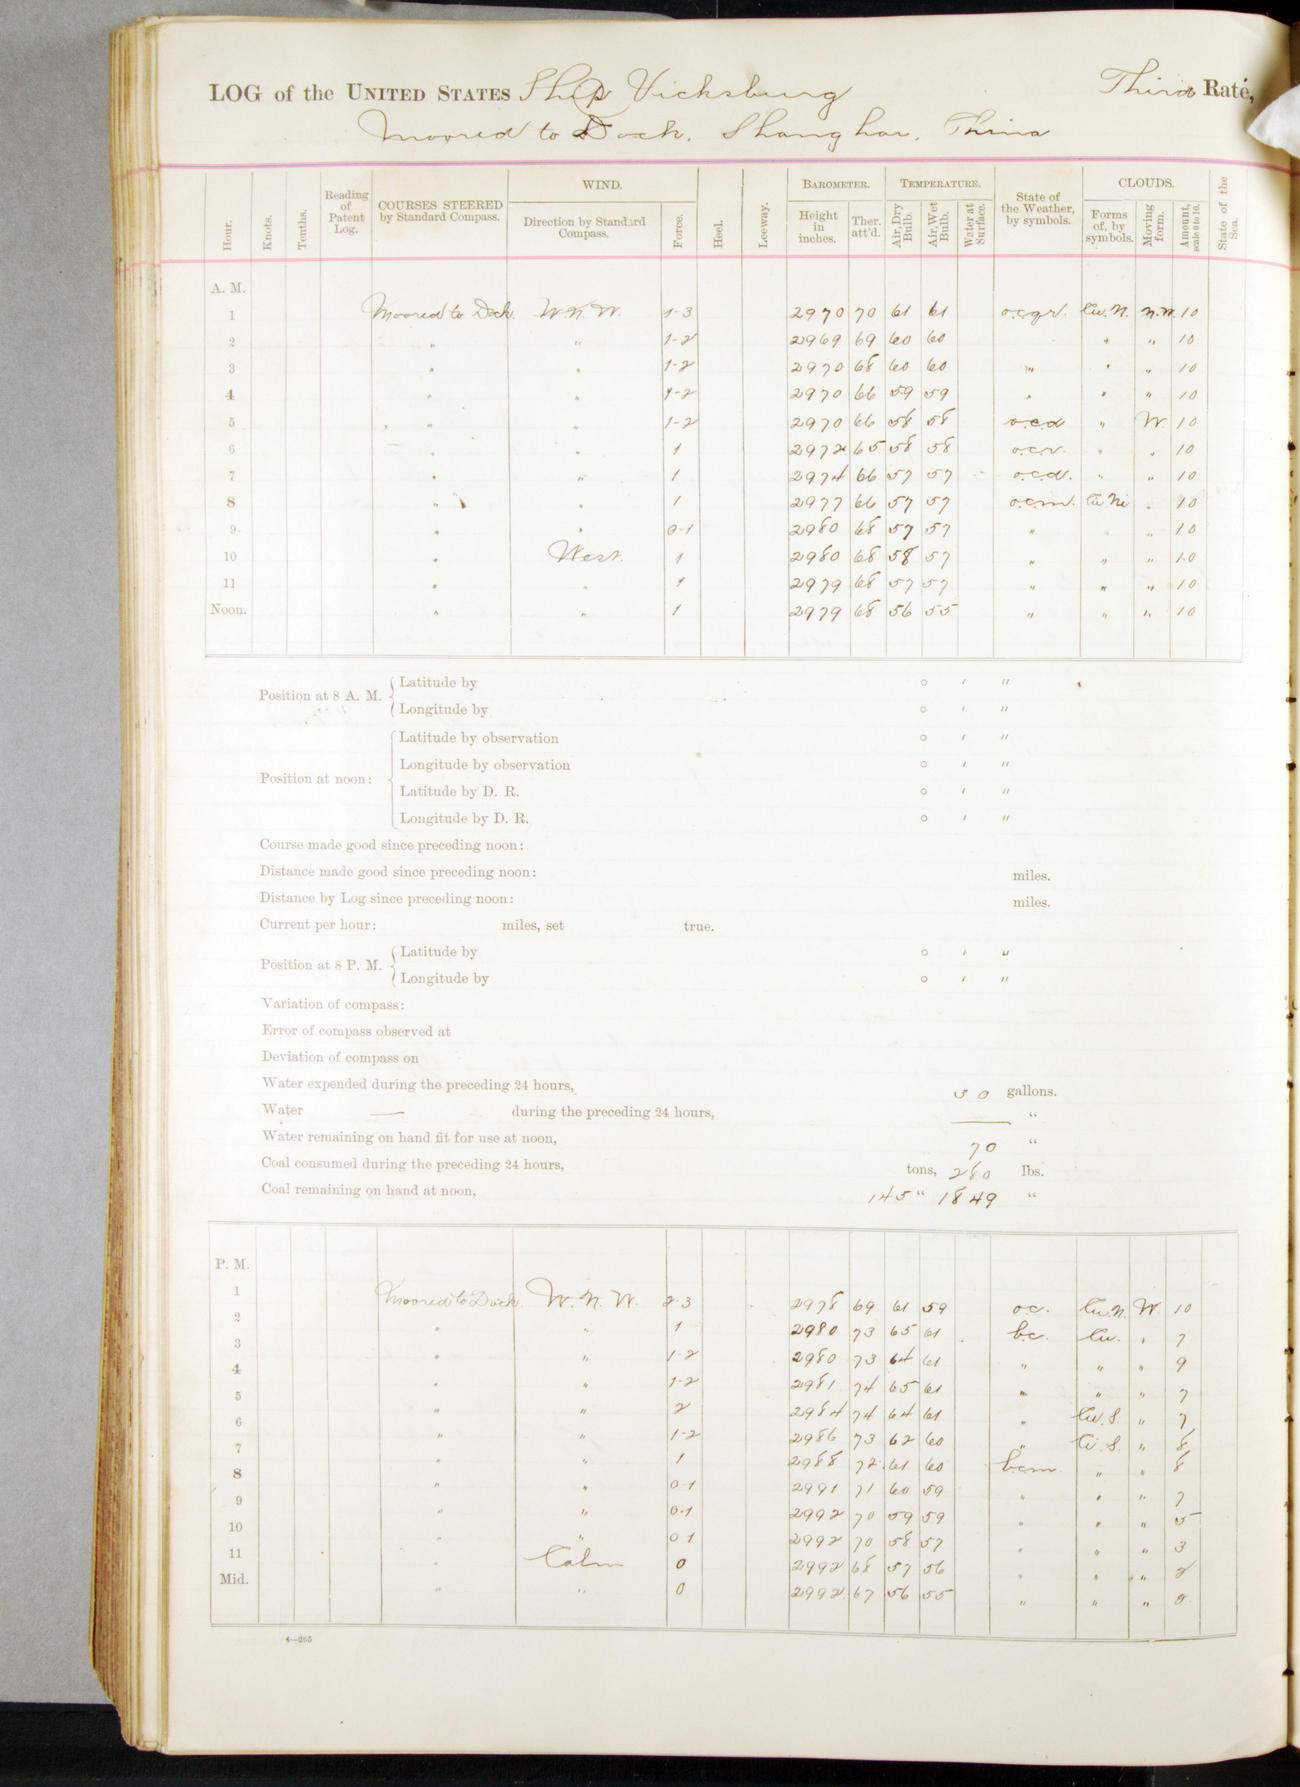 LOG of the UNITED STATES Ship Vicksburg Third Rate,
Moored to Dock. Shanghai. China
Hour. Knots. Tenths. Reading of Patent Log. COURSES STEERED by Standard Compass. WIND. Direction by Standard Compass. Force. Heel. Leeway. BAROMETER. Height in inches. Ther. att'd. TEMPERATURE. Air, Dry Bulb. Air, Wet Bulb. Water at Surface. State of the Weather, by symbols. CLOUDS. Forms of, by symbols. Moving form. Amount, scale 0 to 10. State of the Sea.
A. M.
1 Moored to Dock. W.N.W. 1-3 2970 70 61 61 o.c.g.r. Cu.N. N.W. 10
2 " " 1-2 2969 69 60 60 " " 10
3 " " 1-2 2970 68 60 60 " " " 10
4 " " 1-2 2970 66 59 59 " " " 10
5 " " 1-2 2970 66 58 58 o.c.d " W. 10
6 " " 1 2972 65 58 58 o.c.r. " " 10
7 " " 1 2974 66 57 57 o.c.d. " " 10
8 " " 1 2977 66 57 57 o.c.m. Cu Ni " 10
9 " " 0-1 2980 68 57 57 " " " 10
10 " West. 1 2980 68 58 57 " " " 10
11 " " 1 2979 68 57 57 " " " 10
Noon. " " 1 2979 68 56 55 " " " 10
Position at 8 A. M. Latitude by ° ' "
Longitude by ° ' "
Position at noon: Latitude by observation ° ' "
Longitude by observation ° ' "
Latitude by D. R. ° ' "
Longitude by D. R. ° ' "
Course made good since preceding noon:
Distance made good since preceding noon: miles.
Distance by Log since preceding noon: miles.
Current per hour: miles, set true.
Position at 8 P. M. Latitude by ° ' "
Longitude by ° ' "
Variation of compass:
Error of compass observed at
Deviation of compass on
Water expended during the preceding 24 hours, 50 gallons.
Water — during the preceding 24 hours, — "
Water remaining on hand fit for use at noon, 70 "
Coal consumed during the preceding 24 hours, tons, 280 lbs.
Coal remaining on hand at noon, 145 " 1849 "
P. M.
1 Moored to Dock. W.N.W. 2-3 2978 69 61 59 o.c. Cu.N. W. 10
2 " " 1 2980 73 65 61 b.c. Cu. " 7
3 " " 1-2 2980 73 64 61 " " " 9
4 " " 1-2 2981 74 65 61 " " " 7
5 " " 2 2984 74 64 61 " Cu.S. " 7
6 " " 1-2 2986 73 62 60 " Ci.S. " 8
7 " " 1 2988 72 61 60 b.c.m " " 8
8 " " 0-1 2991 71 60 59 " " " 7
9 " " 0-1 2992 70 59 59 " " " 5
10 " " 0-1 2992 70 58 57 " " " 3
11 " Calm 0 2992 68 57 56 " " " 2
Mid. " " 0 2992 67 56 55 " " " 0
4—265